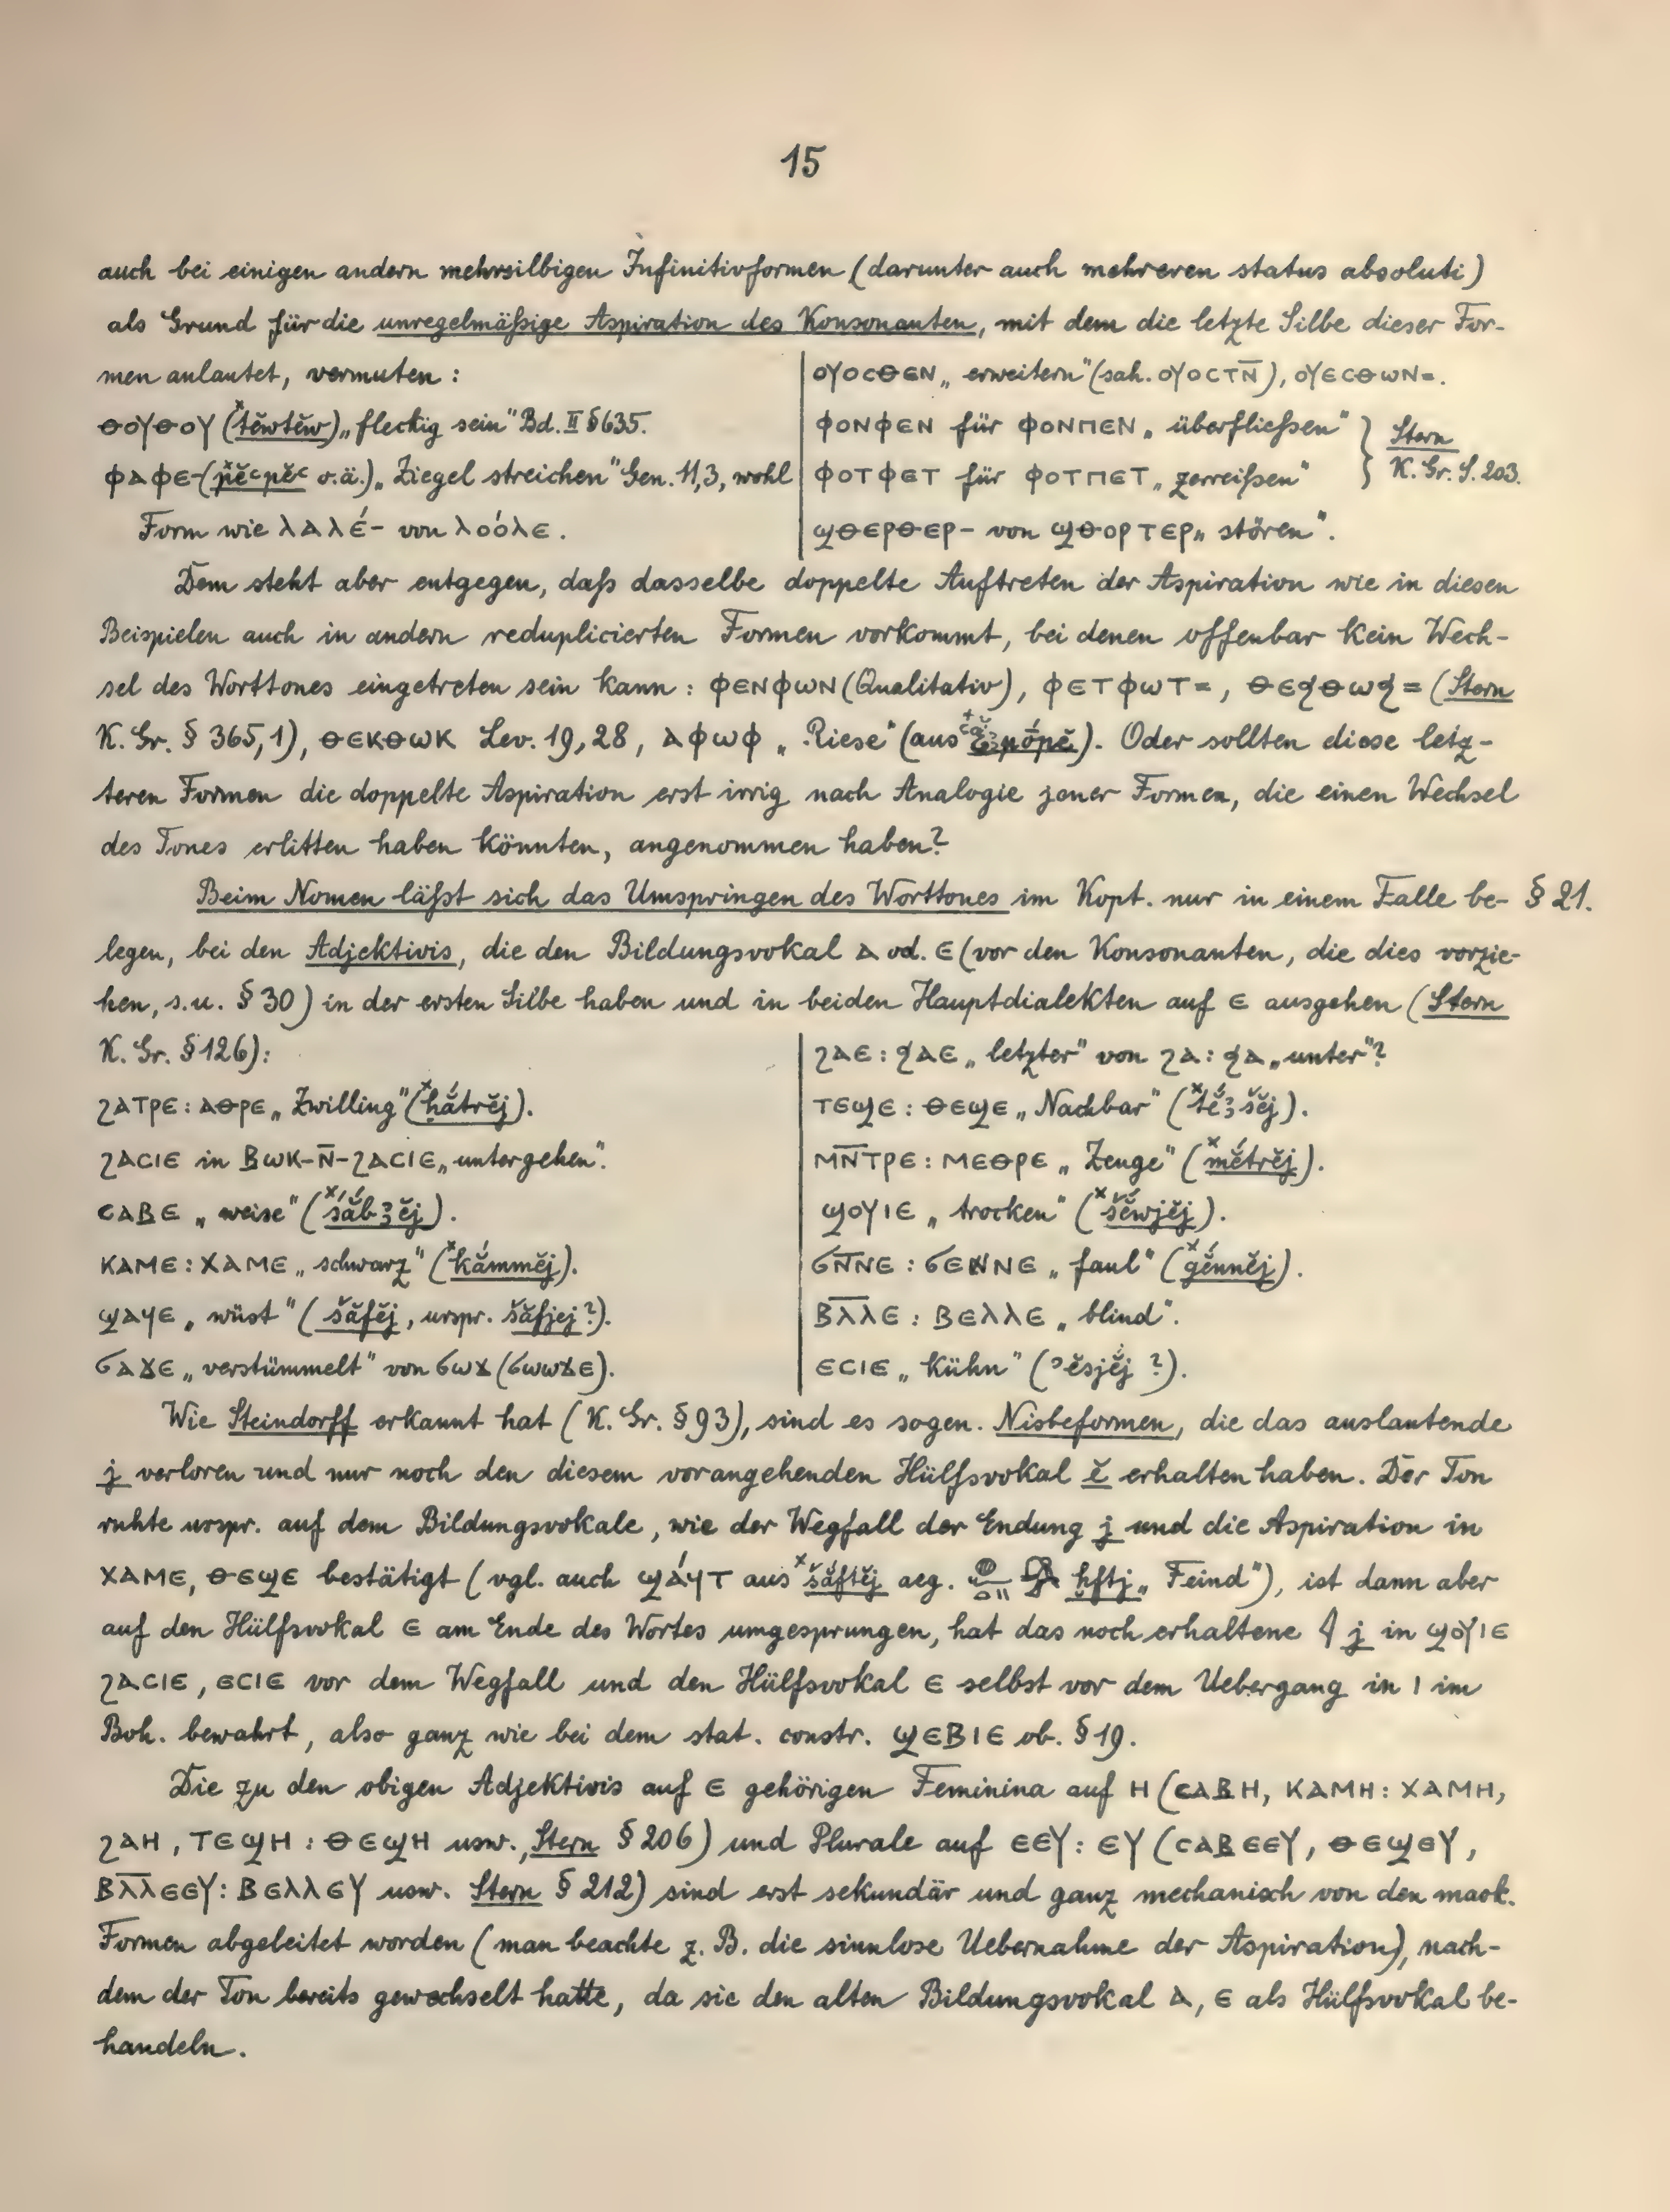 15
auch bei einigen andern mehrsilbigen Infinitivformen (darunter auch mehreren status absoluti)
als Grund für die unregelmäßige Aspiration des Konsonanten, mit dem die letzte Silbe dieser For-
men anlautet, vermuten:
ⲑⲟⲩⲑⲟⲩ (ˣtĕwtĕw) „fleckig sein" Bd. II § 635.
ⲫⲁⲫⲉ- (ˣpĕꜥpĕꜥ o.ä.) „Ziegel streichen" Gen. 11,3, wohl
Form wie ⲗⲁⲗⲉ́- von ⲗⲟⲟ́ⲗⲉ.
ⲟⲩⲟⲥⲑⲉⲛ „erweitern" (sah. ⲟⲩⲟⲥⲧⲛ̄), ⲟⲩⲉⲥⲑⲱⲛ=.
ⲫⲟⲛⲫⲉⲛ für ⲫⲟⲛⲡⲉⲛ „überfließen"
ⲫⲟⲧⲫⲉⲧ für ⲫⲟⲧⲡⲉⲧ „zerreißen"
} Stern K. Gr. S. 203.
ϣⲑⲉⲣⲑⲉⲣ- von ϣⲑⲟⲣⲧⲉⲣ „stören".
Dem steht aber entgegen, daß dasselbe doppelte Auftreten der Aspiration wie in diesen
Beispielen auch in andern reduplicierten Formen vorkommt, bei denen offenbar kein Wech-
sel des Worttones eingetreten sein kann: ⲫⲉⲛⲫⲱⲛ (Qualitativ), ⲫⲉⲧⲫⲱⲧ=, ⲑⲉϥⲑⲱϥ= (Stern
K. Gr. § 365,1), ⲑⲉⲕⲑⲱⲕ Lev. 19,28, ⲁⲫⲱⲫ „Riese" (aus). Oder sollten diese letz-
teren Formen die doppelte Aspiration erst irrig nach Analogie jener Formen, die einen Wechsel
des Tones erlitten haben könnten, angenommen haben?
Beim Nomen läßt sich das Umspringen des Worttones im Kopt. nur in einem Falle be- § 21.
legen, bei den Adjektivis, die den Bildungsvokal ⲁ od. ⲉ (vor den Konsonanten, die dies vorzie-
hen, s.u. § 30) in der ersten Silbe haben und in beiden Hauptdialekten auf ⲉ ausgehen (Stern
K. Gr. § 126):
ϩⲁⲧⲣⲉ: ⲁⲑⲣⲉ „Zwilling" (ˣhắtrĕj).
ϩⲁⲥⲓⲉ in ⲃⲱⲕ-ⲛ̄-ϩⲁⲥⲓⲉ „untergehen".
ⲥⲁⲃⲉ „weise" (ˣsắbꜣĕj).
ⲕⲁⲙⲉ: ⲭⲁⲙⲉ „schwarz" (ˣkắmmĕj).
ϣⲁϥⲉ „wüst" (šăfĕj, urspr. šăfjej?).
ϭⲁϫⲉ „verstümmelt" von ϭⲱϫ (ϭⲱⲱϫⲉ).
ϩⲁⲉ: ϧⲁⲉ „letzter" von ϩⲁ: ϧⲁ „unter"?
ⲧⲉϣⲉ: ⲑⲉϣⲉ „Nachbar" (ˣtĕ́ꜣšĕj).
ⲙⲛ̄ⲧⲣⲉ: ⲙⲉⲑⲣⲉ „Zeuge" (ˣmĕ́trĕj).
ϣⲟⲩⲓⲉ „trocken" (ˣšĕ́wjĕj).
ϭⲛ̄ⲛⲉ: ϭⲉⲛⲛⲉ „faul" (ˣgĕ́nnĕj).
ⲃⲗ̄ⲗⲉ: ⲃⲉⲗⲗⲉ „blind".
ⲉⲥⲓⲉ „kühn" (ʾĕsjĕj ?).
Wie Steindorff erkannt hat (K. Gr. § 93), sind es sogen. Nisbeformen, die das auslautende
j verloren und nur noch den diesem vorangehenden Hülfsvokal ĕ erhalten haben. Der Ton
ruhte urspr. auf dem Bildungsvokale, wie der Wegfall der Endung j und die Aspiration in
ⲭⲁⲙⲉ, ⲑⲉϣⲉ bestätigt (vgl. auch ϣⲁ́ϥⲧ aus ˣšắftĕj aeg. ḫftj „Feind"), ist dann aber
auf den Hülfsvokal ⲉ am Ende des Wortes umgesprungen, hat das noch erhaltene 𓇋 j in ϣⲟⲩⲓⲉ
ϩⲁⲥⲓⲉ, ⲉⲥⲓⲉ vor dem Wegfall und den Hülfsvokal ⲉ selbst vor dem Uebergang in ⲓ im
Boh. bewahrt, also ganz wie bei dem stat. constr. ϣⲉⲃⲓⲉ ob. § 19.
Die zu den obigen Adjektivis auf ⲉ gehörigen Feminina auf ⲏ (ⲥⲁⲃⲏ, ⲕⲁⲙⲏ: ⲭⲁⲙⲏ,
ϩⲁⲏ, ⲧⲉϣⲏ: ⲑⲉϣⲏ usw., Stern § 206) und Plurale auf ⲉⲉⲩ: ⲉⲩ (ⲥⲁⲃⲉⲉⲩ, ⲑⲉϣⲉⲩ,
ⲃⲗ̄ⲗⲉⲉⲩ: ⲃⲉⲗⲗⲉⲩ usw. Stern § 212) sind erst sekundär und ganz mechanisch von den mask.
Formen abgeleitet worden (man beachte z. B. die sinnlose Uebernahme der Aspiration), nach-
dem der Ton bereits gewechselt hatte, da sie den alten Bildungsvokal ⲁ, ⲉ als Hülfsvokal be-
handeln.